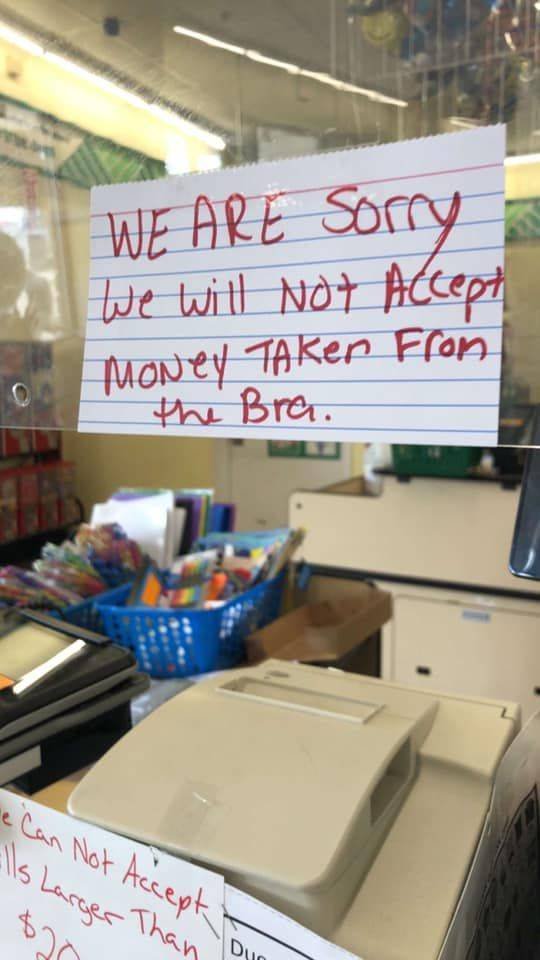 WE ARE Sorry
We Will NOT Accept
MONEY TAKEN From
the Bra.
Can Not Accept
Larger Than
$20